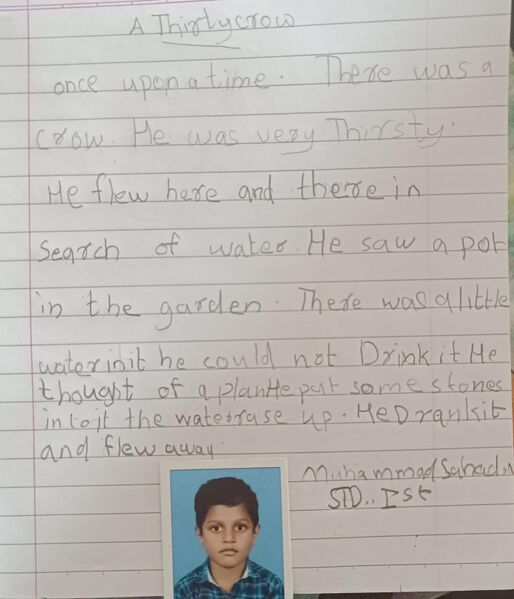 A Thirtycrow
once upon a time. There was a
crow. He was very Thirsty.
He flew here and there in
Search of water. He saw a pot
in the garden. There was a little
water in it he could not Drink it He
thought of a plan He put some stones
in to it the water rase up. He Drank it
and flew away.
Muhammad
STD.. Ist